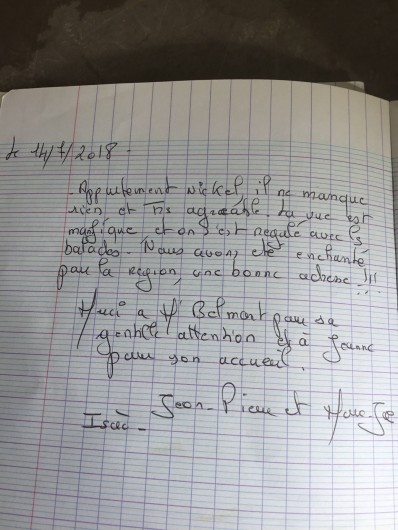 Le 14/7/2018.
Appartement Nickel, il ne manque
rien, et Trs agréable. La vue est
magfique, et on s'est régalé avec ls
balades. Nous avons été enchanté
par la région, une bonne adresse !!!
Merci a Mr Belmont pour sa
gentille attention et à Jeanne
pour son accueil.
Jean-Pierre et Marie-José
Isaac